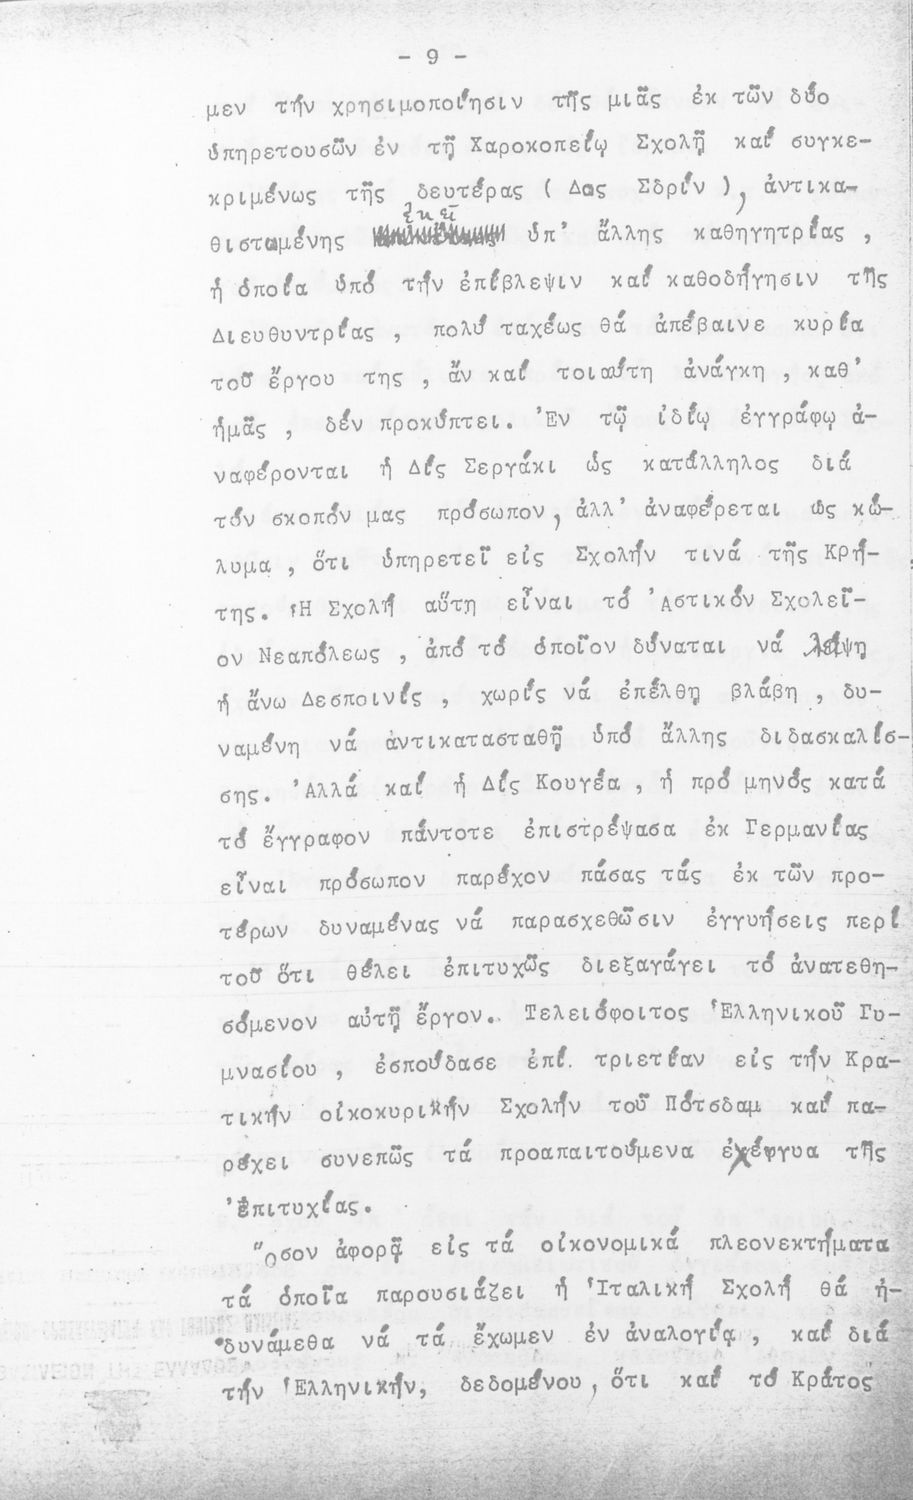 - 9 -
μεν τήν χρησιμοποίησιν τῆς μιᾶς ἐκ τῶν δύο
ὑπηρετουσῶν ἐν τῇ Χαροκοπείῳ Σχολῇ καί συγκε-
κριμένως τῆς δευτέρας ( Δος Σδρίν ), ἀντικα-
ἐκεῖ
θισταμένης ὑπ' ἄλλης καθηγητρίας ,
ἡ ὁποία ὑπό τήν ἐπίβλεψιν καί καθοδήγησιν τῆς
Διευθυντρίας , πολύ ταχέως θά ἀπέβαινε κυρία
τοῦ ἔργου της , ἄν καί τοιαύτη ἀνάγκη , καθ'
ἡμᾶς , δέν προκύπτει. Ἐν τῷ ἰδίῳ ἐγγράφῳ ἀ-
ναφέρονται ἡ Δίς Σεργάκι ὡς κατάλληλος διά
τόν σκοπόν μας πρόσωπον, ἀλλ' ἀναφέρεται ὡς κώ-
λυμα , ὅτι ὑπηρετεῖ εἰς Σχολήν τινά τῆς Κρή-
της. Ἡ Σχολή αὕτη εἶναι τό Ἀστικόν Σχολεῖ-
ον Νεαπόλεως , ἀπό τό ὁποῖον δύναται νά λείψῃ
ἡ ἄνω Δεσποινίς , χωρίς νά ἐπέλθῃ βλάβη , δυ-
ναμένη νά ἀντικατασταθῇ ὑπό ἄλλης διδασκαλίσ-
σης. Ἀλλά καί ἡ Δίς Κουγέα , ἡ πρό μηνός κατά
τό ἔγγραφον πάντοτε ἐπιστρέψασα ἐκ Γερμανίας
εἶναι πρόσωπον παρέχον πάσας τάς ἐκ τῶν προ-
τέρων δυναμένας νά παρασχεθῶσιν ἐγγυήσεις περί
τοῦ ὅτι θέλει ἐπιτυχῶς διεξαγάγει τό ἀνατεθη-
σόμενον αὐτῇ ἔργον. Τελειόφοιτος Ἑλληνικοῦ Γυ-
μνασίου , ἐσπούδασε ἐπί τριετίαν εἰς τήν Κρα-
τικήν οἰκοκυρικήν Σχολήν τοῦ Πότσδαμ καί πα-
ρέχει συνεπῶς τά προαπαιτούμενα ἐχέγγυα τῆς
ἐπιτυχίας.
Ὅσον ἀφορᾷ εἰς τά οἰκονομικά πλεονεκτήματα
τά ὁποῖα παρουσιάζει ἡ Ἰταλική Σχολή θά ἠ-
δυνάμεθα νά τά ἔχωμεν ἐν ἀναλογίᾳ , καί διά
τήν Ἑλληνικήν, δεδομένου , ὅτι καί τό Κράτος